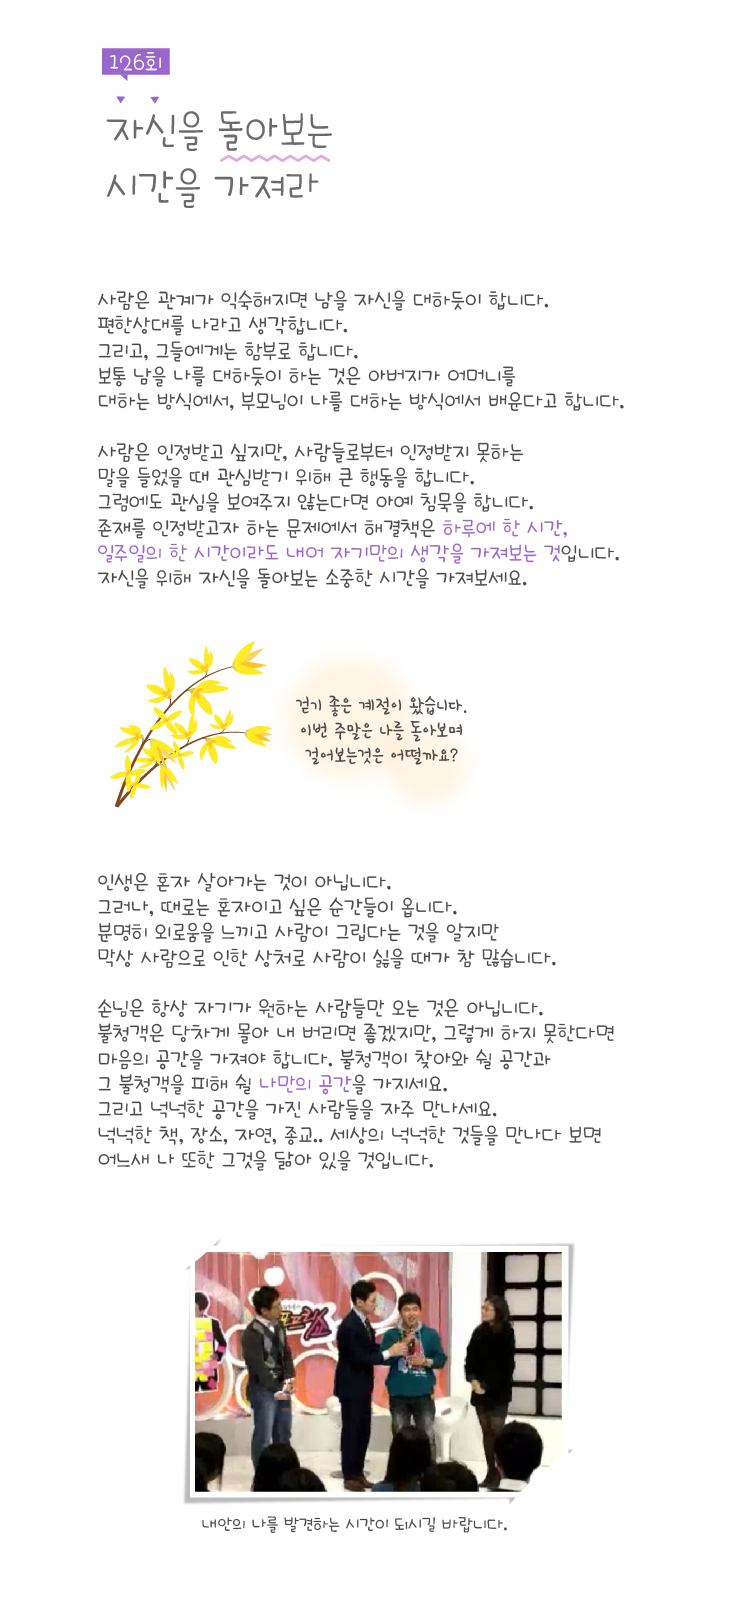 126회
자신을 돌아보는
시간을 가져라
사람은 관계가 익숙해지면 남을 자신을 대하듯이 합니다.
편한상대를 나라고 생각합니다.
그리고, 그들에게는 함부로 합니다.
보통 남을 나를 대하듯이 하는 것은 아버지가 어머니를
대하는 방식에서, 부모님이 나를 대하는 방식에서 배운다고 합니다.
사람은 인정받고 싶지만, 사람들로부터 인정받지 못하는
말을 들었을 때 관심받기 위해 큰 행동을 합니다.
그럼에도 관심을 보여주지 않는다면 아예 침묵을 합니다.
존재를 인정받고자 하는 문제에서 해결책은 하루에 한 시간,
일주일의 한 시간이라도 내어 자기만의 생각을 가져보는 것입니다.
자신을 위해 자신을 돌아보는 소중한 시간을 가져보세요.
걷기 좋은 계절이 왔습니다.
이번 주말은 나를 돌아보며
걸어보는것은 어떨까요?
인생은 혼자 살아가는 것이 아닙니다.
그러나, 때로는 혼자이고 싶은 순간들이 옵니다.
분명히 외로움을 느끼고 사람이 그립다는 것을 알지만
막상 사람으로 인한 상처로 사람이 싫을 때가 참 많습니다.
손님은 항상 자기가 원하는 사람들만 오는 것은 아닙니다.
불청객은 당차게 몰아 내 버리면 좋겠지만, 그렇게 하지 못한다면
마음의 공간을 가져야 합니다. 불청객이 찾아와 쉴 공간과
그 불청객을 피해 쉴 나만의 공간을 가지세요.
그리고 넉넉한 공간을 가진 사람들을 자주 만나세요.
넉넉한 책, 장소, 자연, 종교.. 세상의 넉넉한 것들을 만나다 보면
어느새 나 또한 그것을 닮아 있을 것입니다.
내안의 나를 발견하는 시간이 되시길 바랍니다.